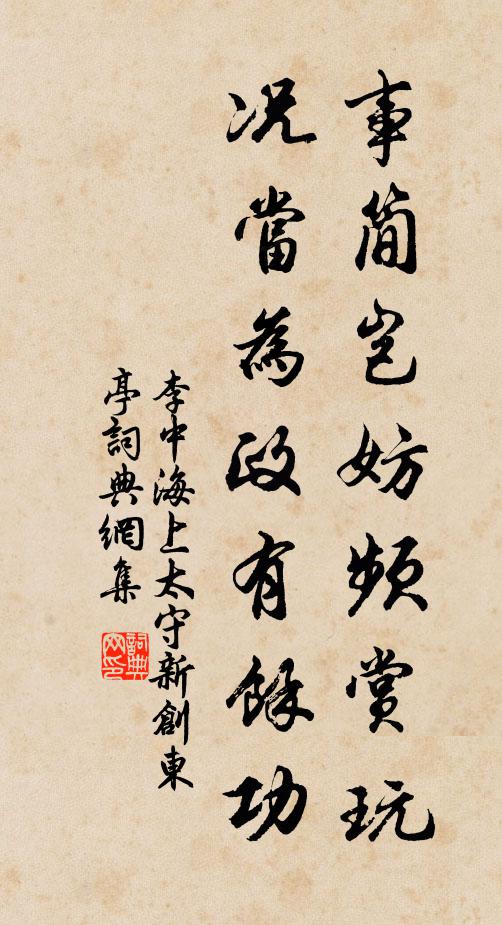 事簡豈妨頻賞玩
況當為政有餘功
李中海上太守新創東
亭詞典網集
詞典網印